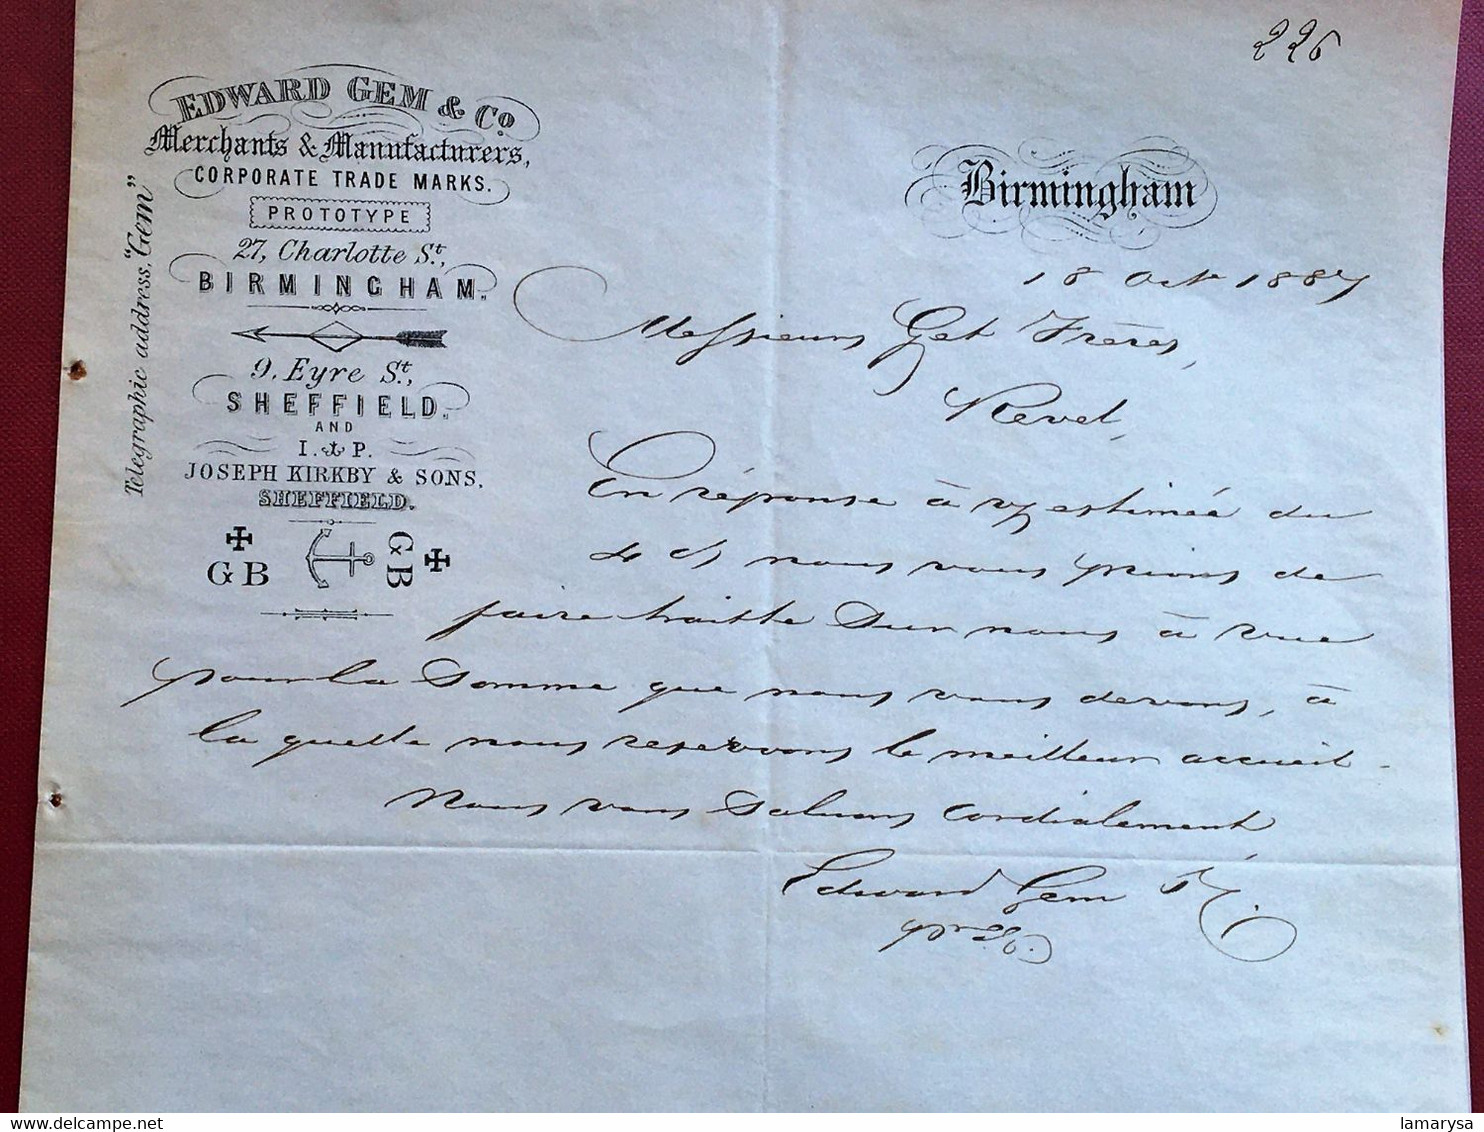 226
EDWARD GEM & Co.
Merchants & Manufacturers,
CORPORATE TRADE MARKS.
PROTOTYPE
27, Charlotte St.,
BIRMINGHAM.
9, Eyre St.,
SHEFFIELD.
AND
I. P.
JOSEPH KIRKBY & SONS,
SHEFFIELD.
GB
GB
Telegraphic address, "Gem"
Birmingham
18 Oct 1887
Messieurs Get Frères,
Revel,
En réponse à v/ estimée du
4 ct nous vous prions de
faire traitte sur nous à vue
pour la somme que nous vous devons, à
la quelle nous reservons le meilleur accueil.
Nous vous saluons cordialement
Edward Gem
lamarysa